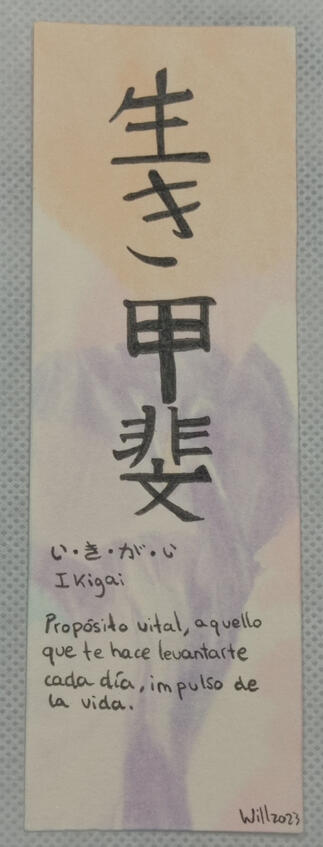 生き甲斐
い・き・が・い
Ikigai
Propósito vital, aquello
que te hace levantarte
cada día, impulso de
la vida.
Will2023